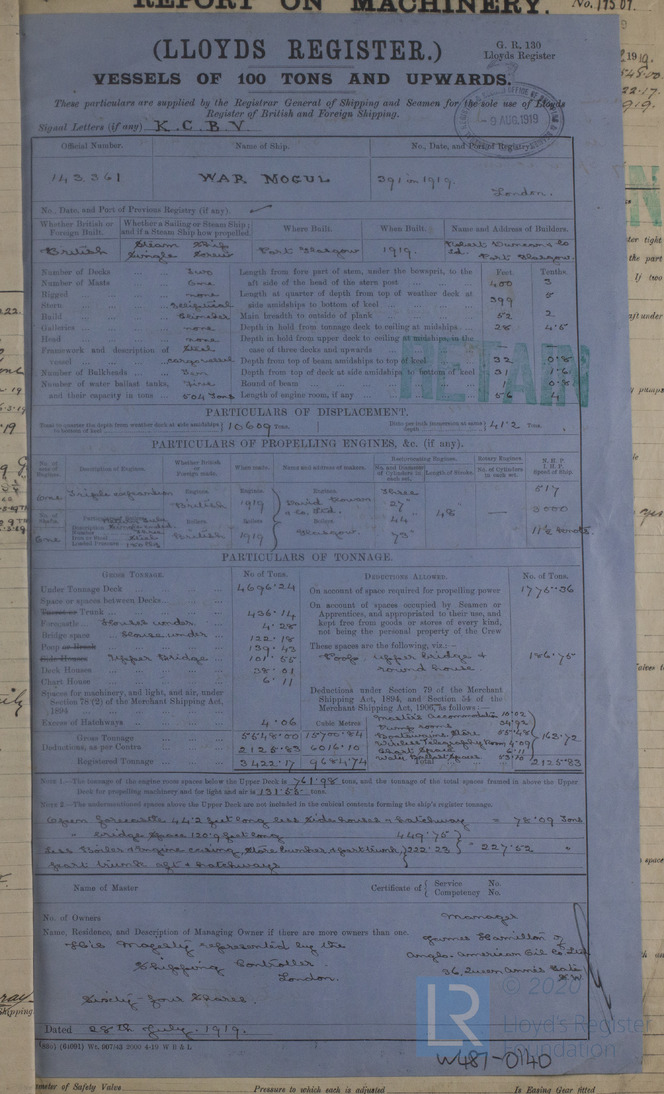 REPORT ON MACHINERY.
(LLOYDS REGISTER.)
G. R. 130
Lloyds Register
VESSELS OF 100 TONS AND UPWARDS.
These particulars are supplied by the Registrar General of Shipping and Seamen for the sole use of Lloyds
Register of British and Foreign Shipping.
Signal Letters (if any) K.C.B.V.
9 AUG.1919
Official Number. Name of Ship. No., Date, and Port of Registry.
143.361 WAR MOGUL 391 in 1919.
London.
No., Date, and Port of Previous Registry (if any).
Whether British or Foreign Built. Whether a Sailing or Steam Ship; and if a Steam Ship how propelled. Where Built. When Built. Name and Address of Builders.
British Steam Ship Single Screw Port Glasgow 1919. Robert Duncan & Co Ld. Port Glasgow.
Number of Decks Two Length from fore part of stem, under the bowsprit, to the
Number of Masts One aft side of the head of the stern post 400 3
Rigged none Length at quarter of depth from top of weather deck at
Stern Elliptical side amidships to bottom of keel 399 5
Build Clencher Main breadth to outside of plank 52 2
Galleries none Depth in hold from tonnage deck to ceiling at midships 28 4.5
Head none Depth in hold from upper deck to ceiling at midships, in the
Framework and description of Steel case of three decks and upwards
vessel Depth from top of beam amidships to top of keel 32 0.8
Number of Bulkheads Depth from top of deck at side amidships to bottom of keel 31 1.61
Number of water ballast tanks, Round of beam 1 0.8
and their capacity in tons 504 Tons Length of engine room, if any 56 4
RETAIN
PARTICULARS OF DISPLACEMENT.
Total to quarter the depth from weather deck at side amidships to bottom of keel 10,609 tons. Ditto per inch immersion at same depth 41.2 Tons.
PARTICULARS OF PROPELLING ENGINES, &c. (if any).
No. of sets of Engines. Description of Engines. Whether British or Foreign made. When made. Name and address of makers. Reciprocating Engines. No. and Diameter of Cylinders in each set. Length of Stroke. Rotary Engines. No. of Cylinders in each set. N.H.P. I.H.P. Speed of Ship
One Triple expansion Engines. British Engines 1919 Engines. David Rowan & Co. Ltd. Three 27" 44 73" 48 517
3000
One Boilers British Boilers 1919 Boilers Glasgow. 11½ knots.
PARTICULARS OF TONNAGE.
GROSS TONNAGE. No of Tons. DEDUCTIONS ALLOWED. No. of Tons.
Under Tonnage Deck 4696.24 On account of space required for propelling power 1775.36
Space or spaces between Decks
Turret or Trunk 436.14 On account of spaces occupied by Seamen or
Forecastle Houses under 4.28 Apprentices, and appropriated to their use, and
Bridge space House under 122.18 kept free from goods or stores of every kind,
Poop or Break 139.43 not being the personal property of the Crew
Side Houses Upper Bridge 101.55 These spaces are the following, viz.:—
Deck Houses 38.01 Poop, upper bridge & round house 186.75
Chart House 6.11
Spaces for machinery, and light, and air, under Section 78 (2) of the Merchant Shipping Act, 1894
Deductions under Section 79 of the Merchant Shipping Act, 1894, and Section 54 of the Merchant Shipping Act, 1906, as follows:—
Excess of Hatchways 4.06 Cubic Metres
Master's Accommodation 10.02
Boatswains Store 55.48
Wireless Telegraphy Room 4.09
Chart Space 6.11
Water Ballast Spaces 53.10
163.72
Gross Tonnage 5548.00 15700.84
Deductions, as per Contra 2125.83 6016.10
Registered Tonnage 3422.17 9684.74 Total 2125.83
NOTE 1.—The tonnage of the engine room spaces below the Upper Deck is 761.98 tons, and the tonnage of the total spaces framed in above the Upper
Deck for propelling machinery and for light and air is 131.55 tons
NOTE 2.—The undermentioned spaces above the Upper Deck are not included in the cubical contents forming the ship's register tonnage.
Open forecastle 44.2 feet long less side houses & hatchway = 75.09 Tons
" bridge space 120.9 feet long 449.75
less Boiler & Engine casing, Store bunker & part trunk, 222.23 = 227.52 "
part trunk aft & hatchways
Name of Master Certificate of Service No. Competency No.
No. of Owners Manager
Name, Residence, and Description of Managing Owner if there are more owners than one. James Hamilton of
His Majesty represented by the Anglo-American Oil Co Ltd
Shipping Controller. 36, Queen Anne's Gate
London. S.W.
Sixty-four Shares.
Dated 28th July, 1919.
© 2020
LR
Lloyd's Register
Foundation
W481-0140
Pressure to which each is adjusted Is Easing Gear fitted